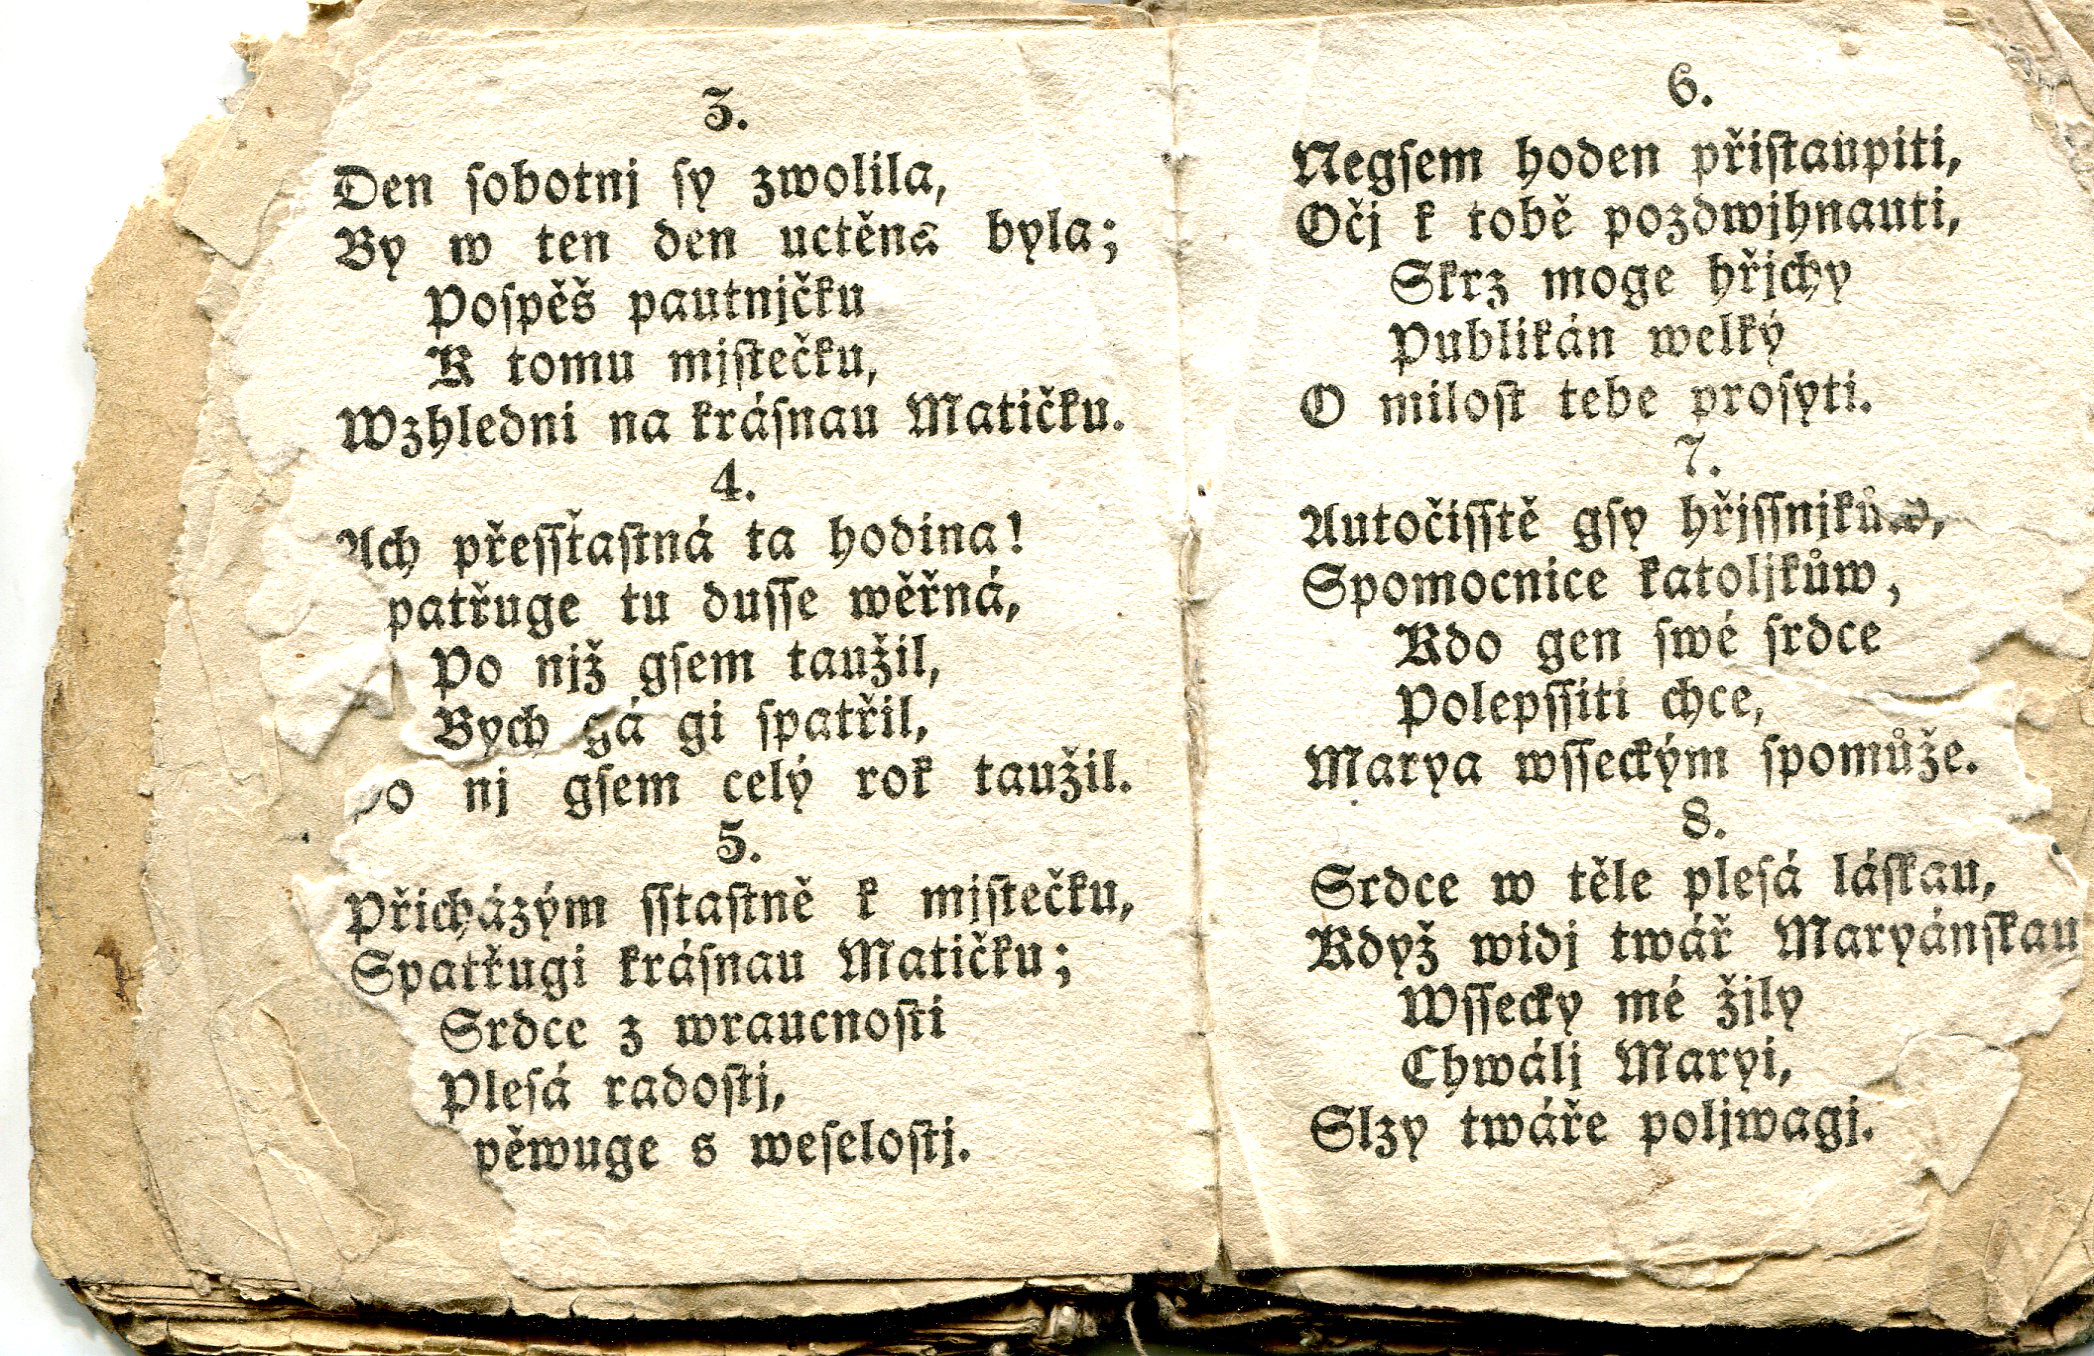 3.
Den sobotnj sy zwolila,
By w ten den uctěna byla;
Pospěš pautnjčku
K tomu mjstečku,
Wzhledni na krásnau Matičku.
4.
Ach přessťastná ta hodina!
patřuge tu dusse wěřná,
Po njž gsem taužil,
Bych gá gi spatřil,
Po nj gsem celý rok taužil.
5.
Přicházým sstastně k mjstečku,
Spatřugi krásnau Matičku;
Srdce z wraucnosti
Plesá radostj,
pěwuge s weselostj.
6.
Negsem hoden přistaupiti,
Očj k tobě pozdwjhnauti,
Skrz moge hřjchy
Publikán welký
O milost tebe prosyti.
7.
Autočisstě gsy hřjssnjkůw,
Spomocnice katoljkůw,
Kdo gen swé srdce
Polepssiti chce,
Marya wsseckým spomůže.
8.
Srdce w těle plesá láskau,
Když widj twář Maryánskau
Wssecky mé žjly
Chwálj Maryi,
Slzy twáře poljwagj.